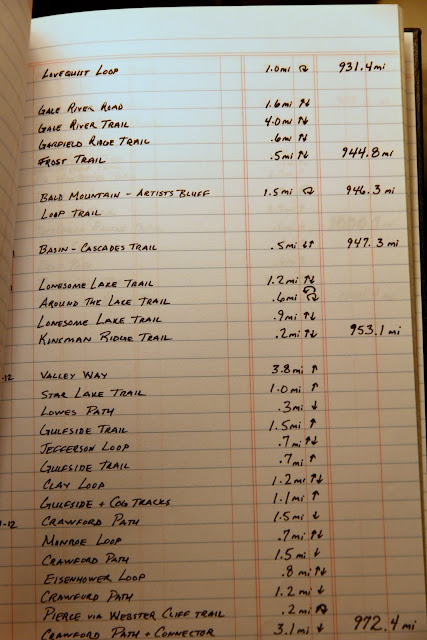 LOVEQUIST LOOP 1.0mi 931.4mi
GALE RIVER ROAD 1.6mi ↑↓
GALE RIVER TRAIL 4.0mi ↑↓
GARFIELD RIDGE TRAIL .6mi ↑↓
FROST TRAIL .5mi ↑↓ 944.8mi
BALD MOUNTAIN - ARTISTS BLUFF 1.5mi 946.3mi
LOOP TRAIL
BASIN - CASCADES TRAIL .5mi ↓↑ 947.3mi
LONESOME LAKE TRAIL 1.2mi ↑↓
AROUND THE LAKE TRAIL .6mi
LONESOME LAKE TRAIL .9mi ↑↓
KINSMAN RIDGE TRAIL .2mi ↑↓ 953.1mi
-12 VALLEY WAY 3.8mi ↑
STAR LAKE TRAIL 1.0mi ↑
LOWES PATH .3mi ↓
GULFSIDE TRAIL 1.5mi ↑
JEFFERSON LOOP .7mi ↑↓
GULFSIDE TRAIL .7mi ↑
CLAY LOOP 1.2mi ↑↓
GULFSIDE + COG TRACKS 1.1mi ↑
-12 CRAWFORD PATH 1.5mi ↓
MONROE LOOP .7mi ↑↓
CRAWFORD PATH 1.5mi ↓
EISENHOWER LOOP .8mi ↑↓
CRAWFORD PATH 1.2mi ↓
PIERCE VIA WEBSTER CLIFF TRAIL .2mi
CRAWFORD PATH + CONNECTOR 3.1mi ↓ 972.4mi